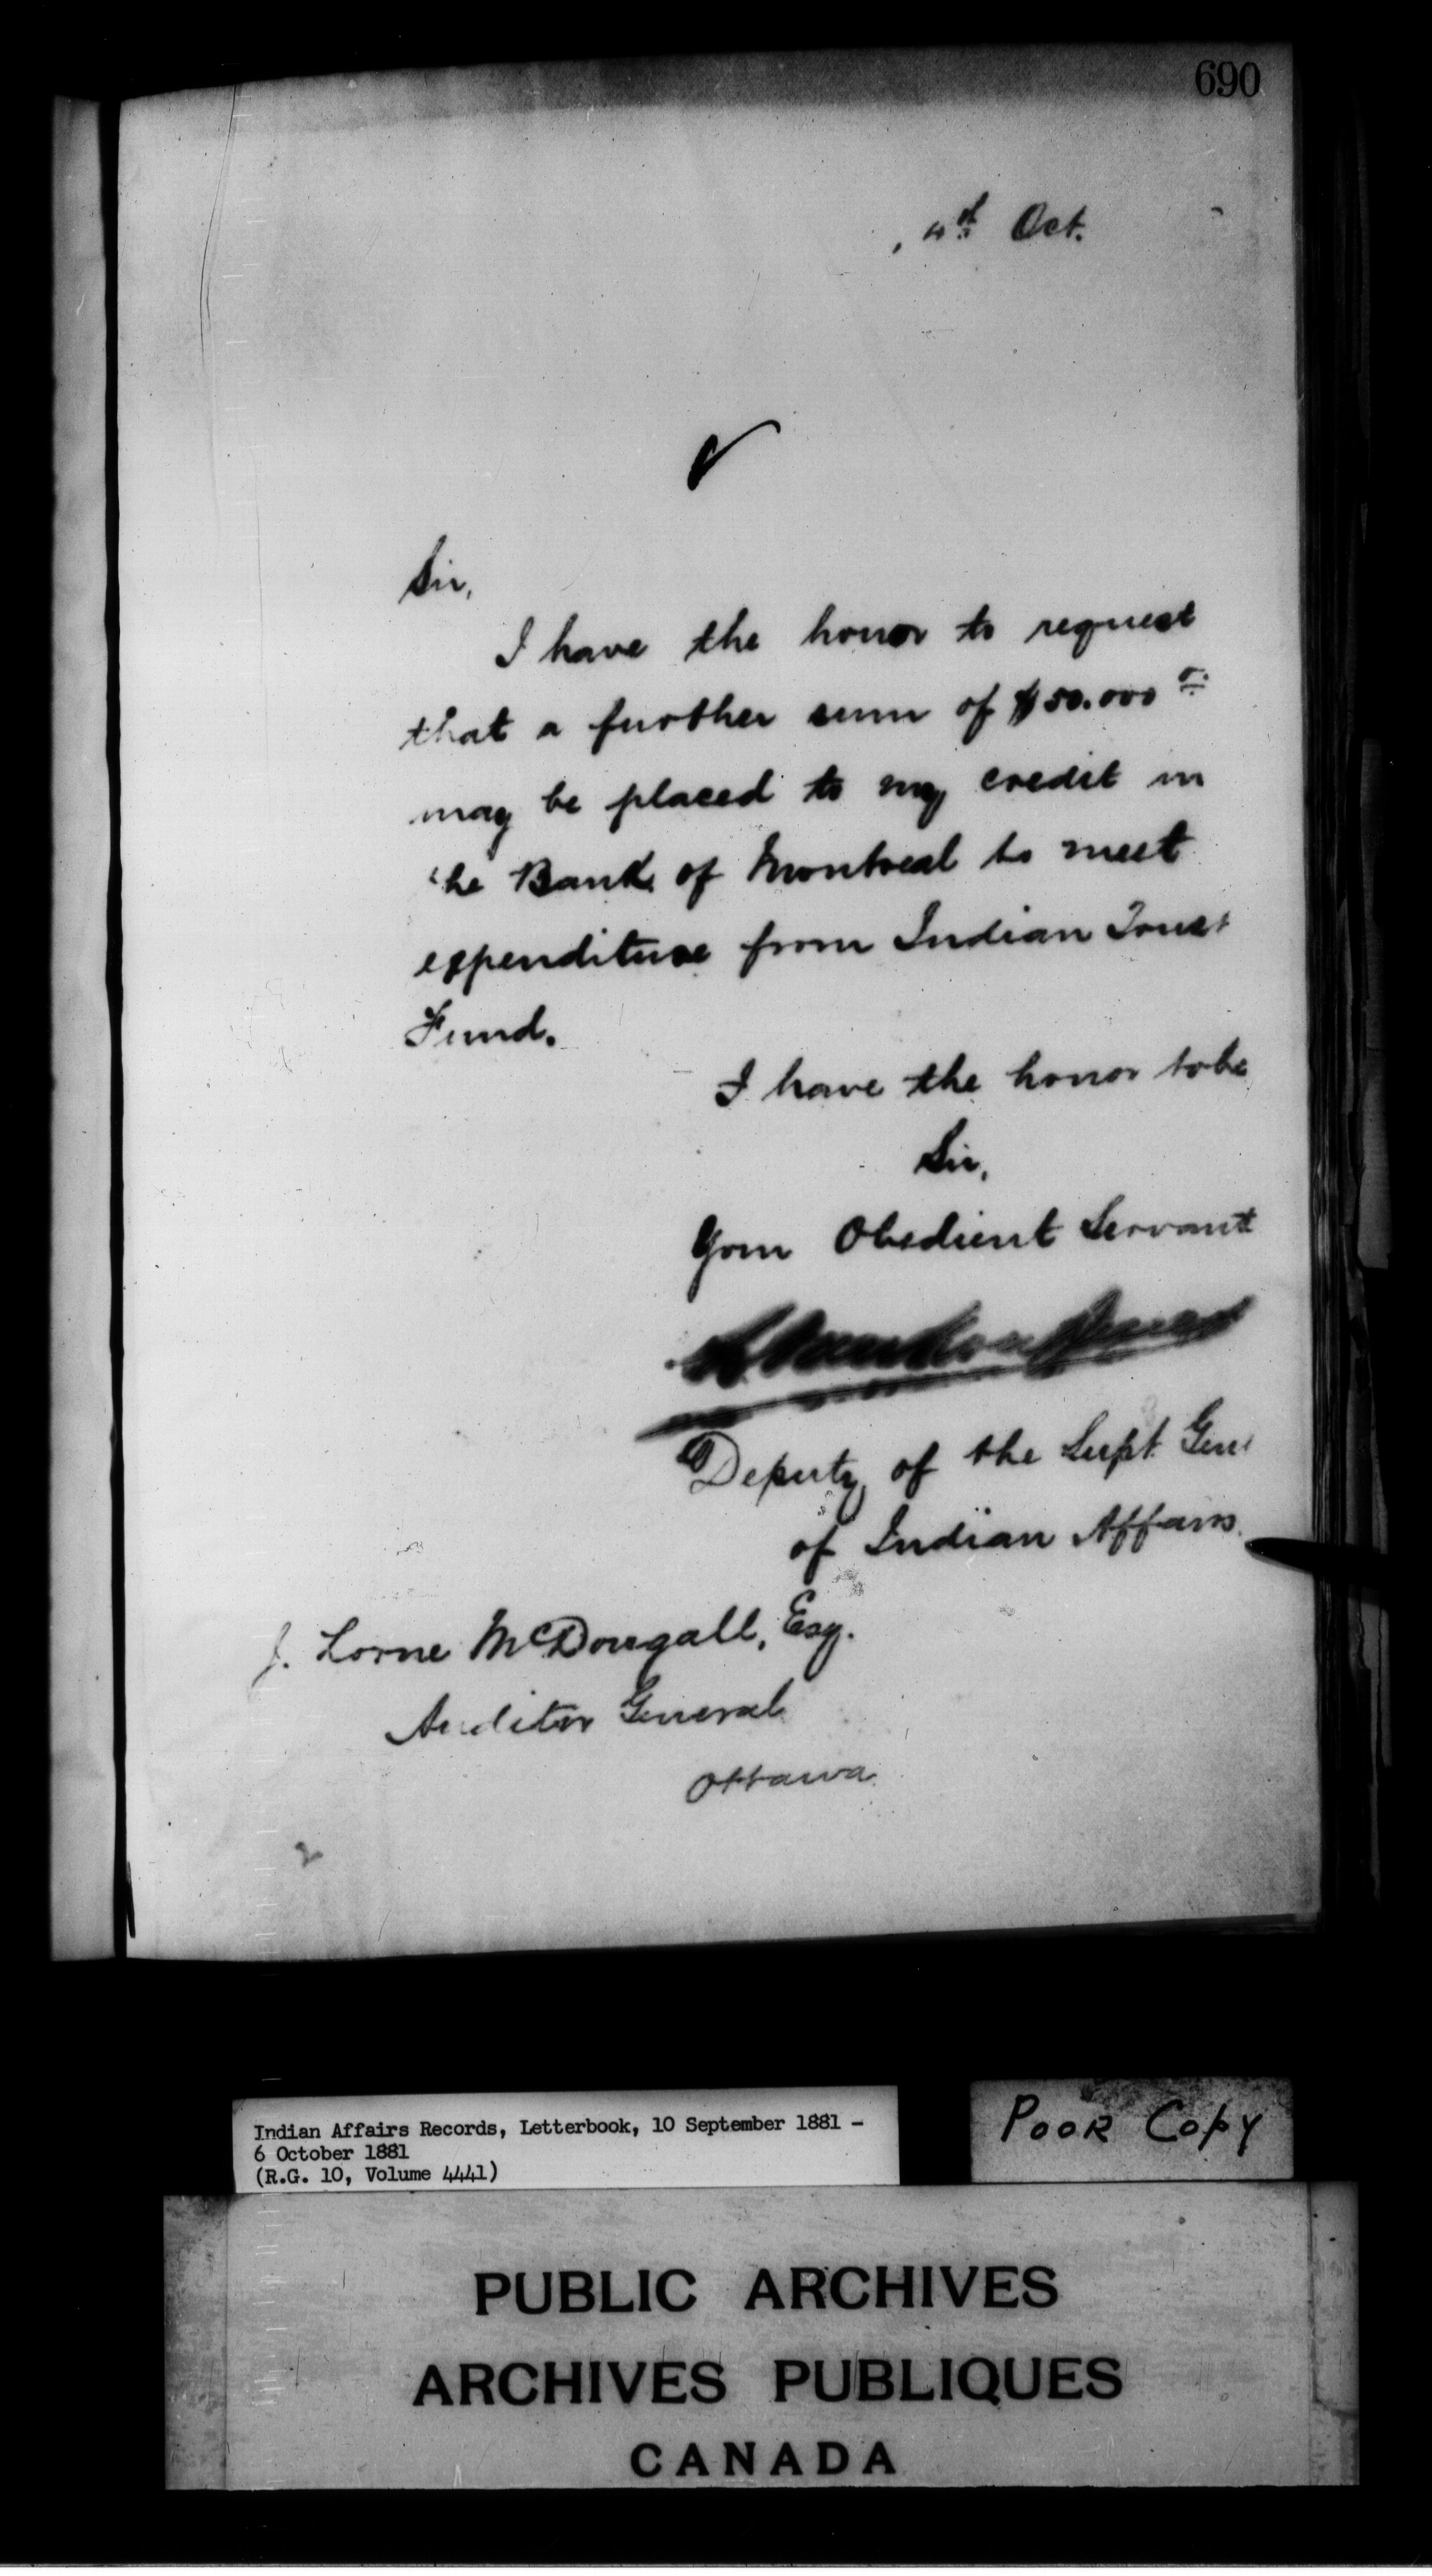 690
4th Oct.
Sir,
I have the honor to request
that a further sum of $50.000
may be placed to my credit in
the Bank of Montreal to meet
expenditure from Indian Trust
Fund.
I have the honor to be
Sir,
Your Obedient Servant
L Vankoughnet
Deputy of the Supt. Genl
of Indian Affairs.
J. Lorne McDougall, Esq.
Auditor General
Ottawa
Indian Affairs Records, Letterbook, 10 September 1881 -
6 October 1881
(R.G. 10, Volume 4441)
POOR COPY
PUBLIC ARCHIVES
ARCHIVES PUBLIQUES
CANADA